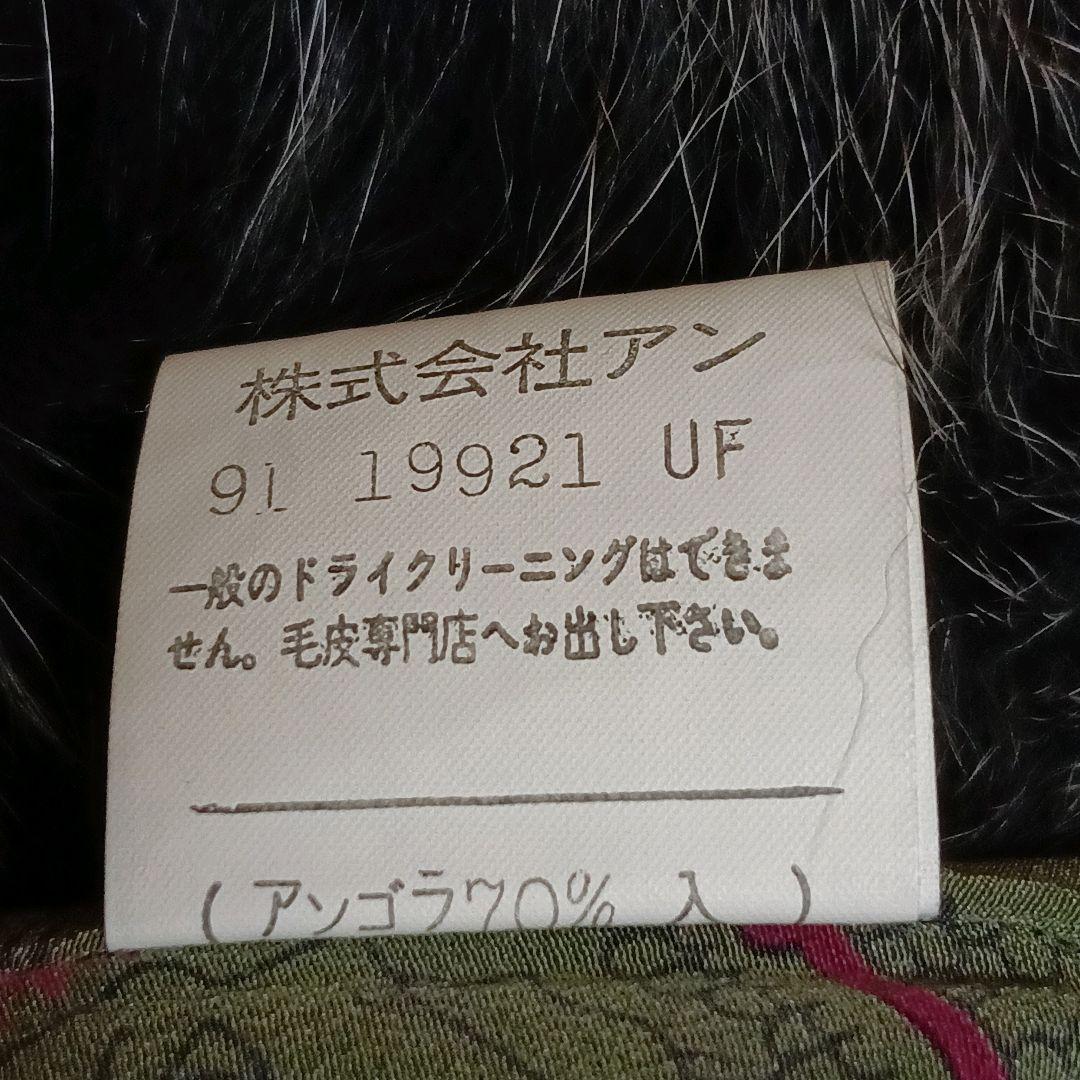 株式会社アン
91 19921 UF
一般のドライクリーニングはできま
せん。毛皮専門店へお出し下さい。
(アンゴラ70% 入 )